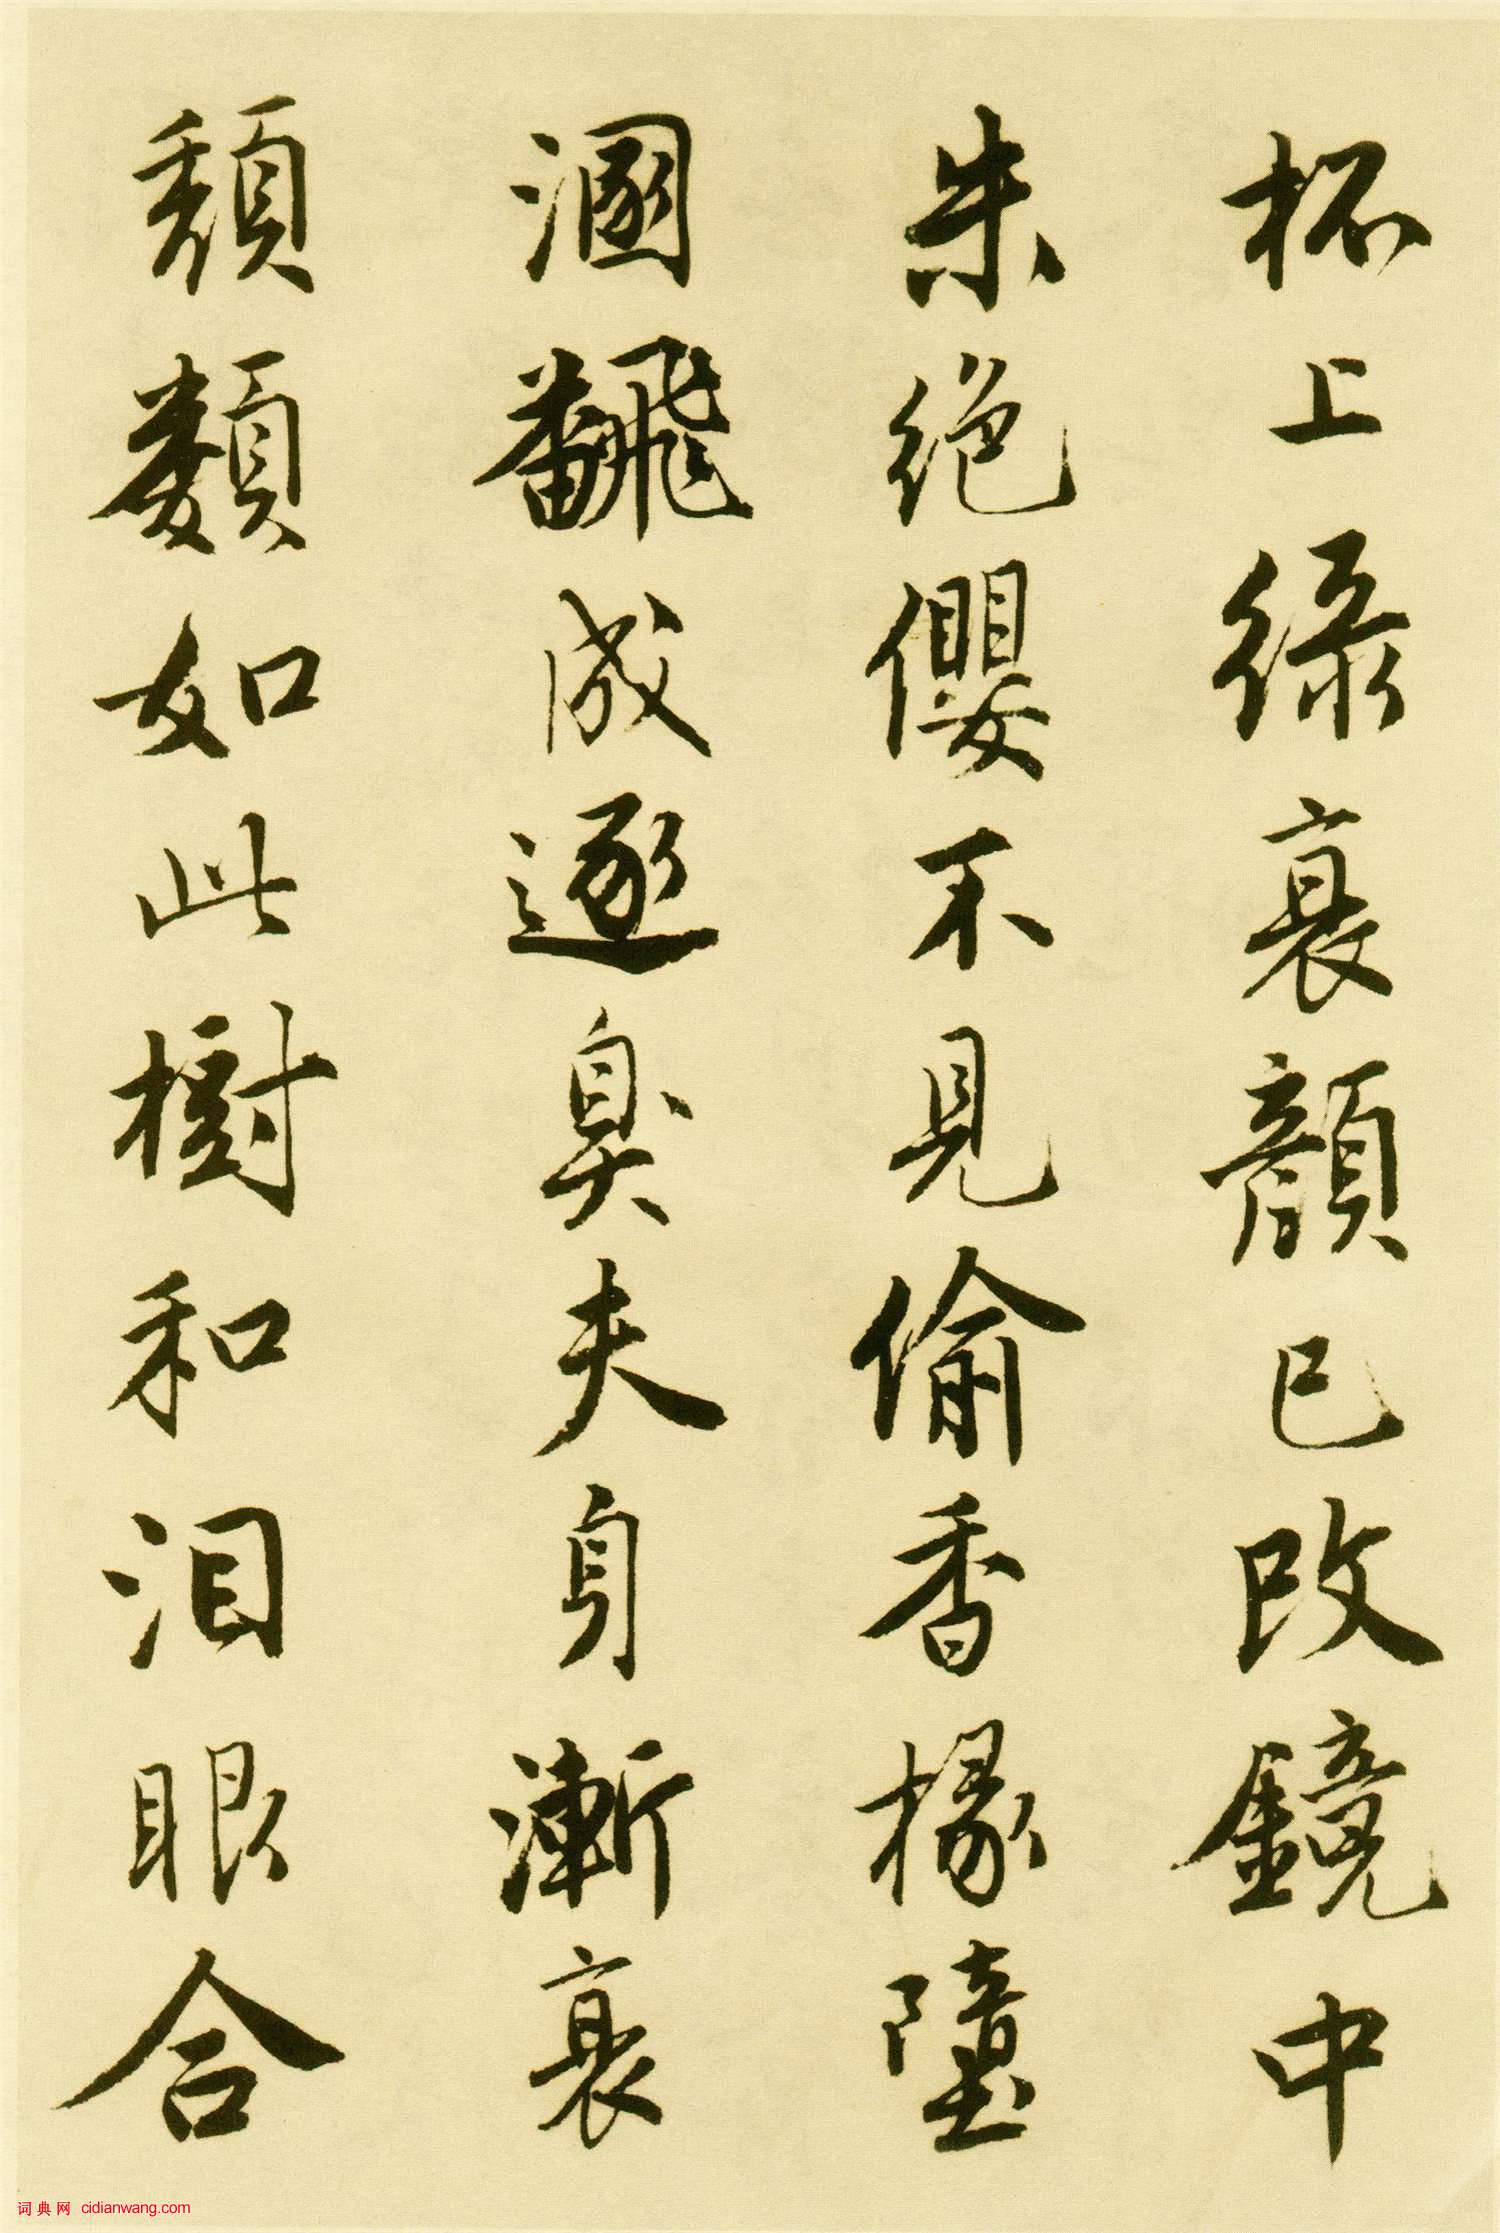 杯上綠衰顏已改鏡中
朱絕纓不見偷香椽墮
溷翻成逐臭夫身漸衰
頹類如此樹和泪眼合
词典网 cidianwang.com